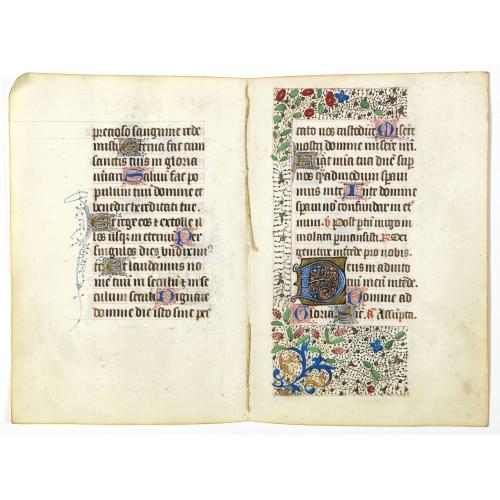 precioso sanguine rede
misti Eterna fac cum
sanctis tuis in gloria
numari Salvum fac po
pulum tuum domine et
benedic hereditati tue.
Et rege eos et extolle il
los usq; in eternum Per
singulos dies benediximus
te Et laudamus no
men tuum in seculum et in se
culum seculi Dignare
domine die isto sine pec
cato nos custodire Misere
nostri domine miserere nri
Fiat mia tua dne sup
nos quemadmodum speravi
mus in te In te domine
speravi no confundar in et
num. v Post ptum virgo in
violata permansisti. R Dei
genitrix intercede pro nobis.
Deus in adiuto
rium meum intende.
Domine ad
Gloria Sic. a Assumpta.